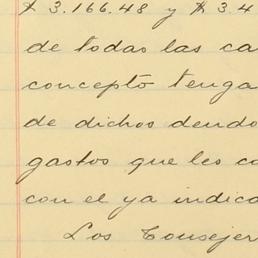 $ 3.166.48 y $ 3.4
de todas las ca
concepto tenga
de dichos deudo
gastos que les co
con el ya indica
Los Consejer